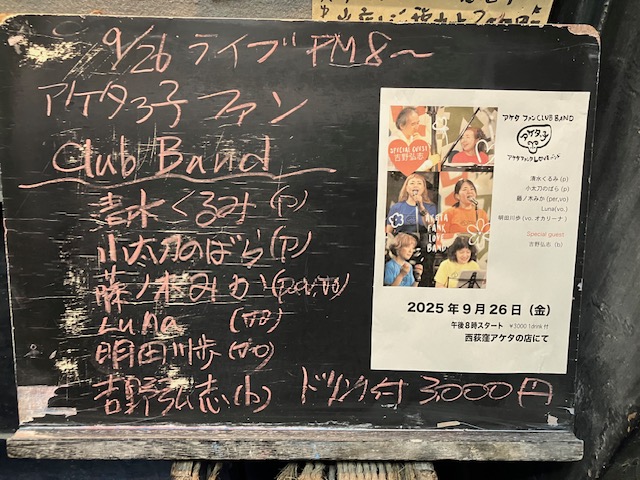 9/26 ライブ PM8〜
アケタ3子 ファン
Club Band
清水くるみ(P)
小太刀のばら(P)
藤ノ木みか(per,vo)
Luna (vo)
明田川歩(vo)
吉野弘志(b) ドリンク付 3,000円
SPECIAL GUEST
吉野弘志
AKETA
FANK
LOVE
BAND
アケタ ファン CLUB BAND
清水くるみ(p)
小太刀のばら(p)
藤ノ木みか(per,vo)
Luna(vo.)
明田川歩(vo. オカリーナ)
Special guest
吉野弘志 (b)
2025年9月26日（金）
午後8時スタート ¥3000 1drink 付
西荻窪アケタの店にて